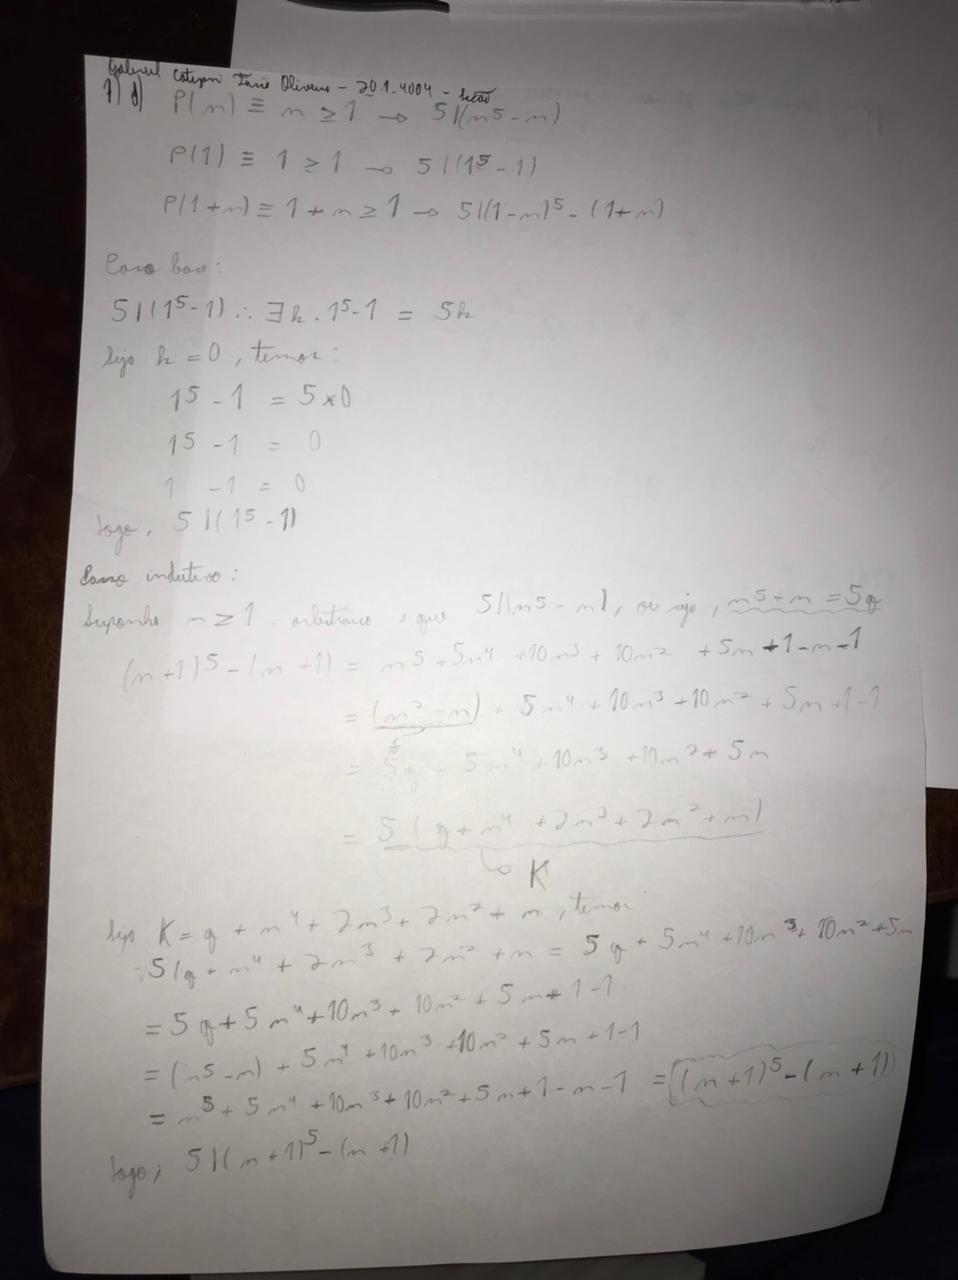 Oliveira - 20.1.4004 -
1) d) P(n) ≡ n ≥ 1 → 5|(n⁵ - n)
P(1) ≡ 1 ≥ 1 → 5|(1⁵ - 1)
P(1+n) ≡ 1 + n ≥ 1 → 5|(1-n)⁵ - (1+n)
Caso base:
5|(1⁵-1) ∴ ∃k . 1⁵-1 = 5k
Seja k = 0, temos:
1⁵ - 1 = 5 × 0
1⁵ - 1 = 0
1 - 1 = 0
Logo, 5|(1⁵ - 1)
Passo indutivo:
Suponha n ≥ 1 arbitrário, que 5|(n⁵ - n), ou seja, n⁵ - n = 5q
(n+1)⁵ - (n+1) = n⁵ + 5n⁴ + 10n³ + 10n² + 5n + 1 - n - 1
= (n² - n) + 5n⁴ + 10n³ + 10n² + 5n + 1 - 1
= 5q + 5n⁴ + 10n³ + 10n² + 5n
= 5(q + n⁴ + 2n³ + 2n² + n)
K
Seja K = q + n⁴ + 2n³ + 2n² + n, temos:
5(q + n⁴ + 2n³ + 2n² + n = 5q + 5n⁴ + 10n³ + 10n² + 5n
= 5q + 5n⁴ + 10n³ + 10n² + 5n + 1 - 1
= (n⁵ - n) + 5n⁴ + 10n³ + 10n² + 5n + 1 - 1
= n⁵ + 5n⁴ + 10n³ + 10n² + 5n + 1 - n - 1 = (n+1)⁵ - (n+1)
Logo, 5|(n+1)⁵ - (n+1)